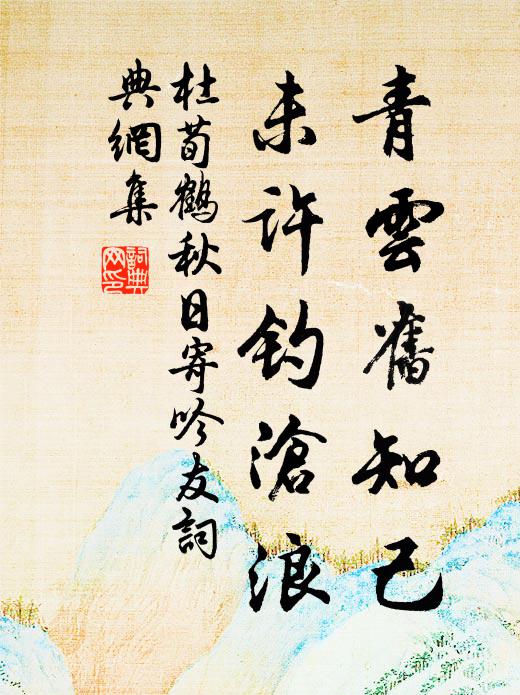 青雲舊知己
未許釣滄浪
杜荀鶴秋日寄吟友詞
典網集
詞典
网印